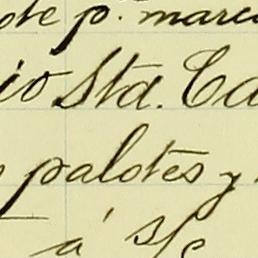 de p. marc
io Sta. Ca
palotes y
á s/c